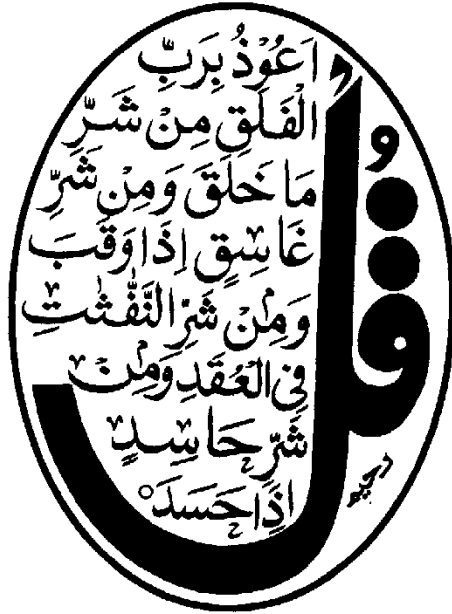 قُل
اَعُوْذُ بِرَبِّ
الْفَلَقِ مِنْ شَرِّ
مَا خَلَقَ وَمِنْ شَرِّ
غَاسِقٍ اِذَا وَقَبَ
وَمِنْ شَرِّ النَّفّٰثٰتِ
فِى الْعُقَدِ وَمِنْ
شَرِّ حَاسِدٍ
اِذَا حَسَدَ
رحیم